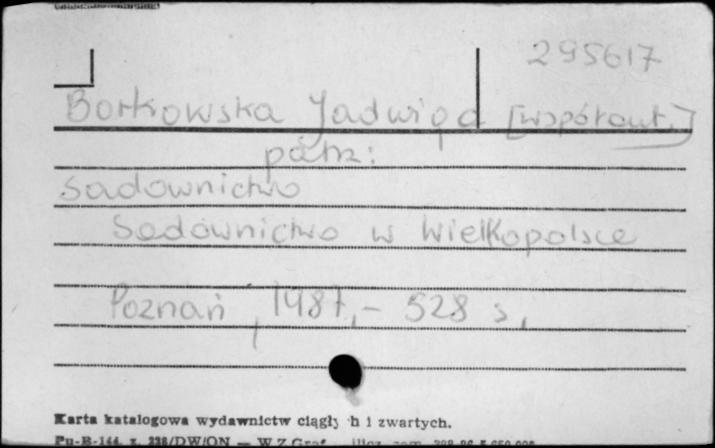 295617
Borkowska Jadwiga [współaut.]
patrz:
Sadownictwo
Sadownictwo w Wielkopolsce
Poznań, 1987, - 528 s.
Karta katalogowa wydawnictw ciągłych i zwartych.
Pu-B-144. z. 228/DW/ON — WZGraf